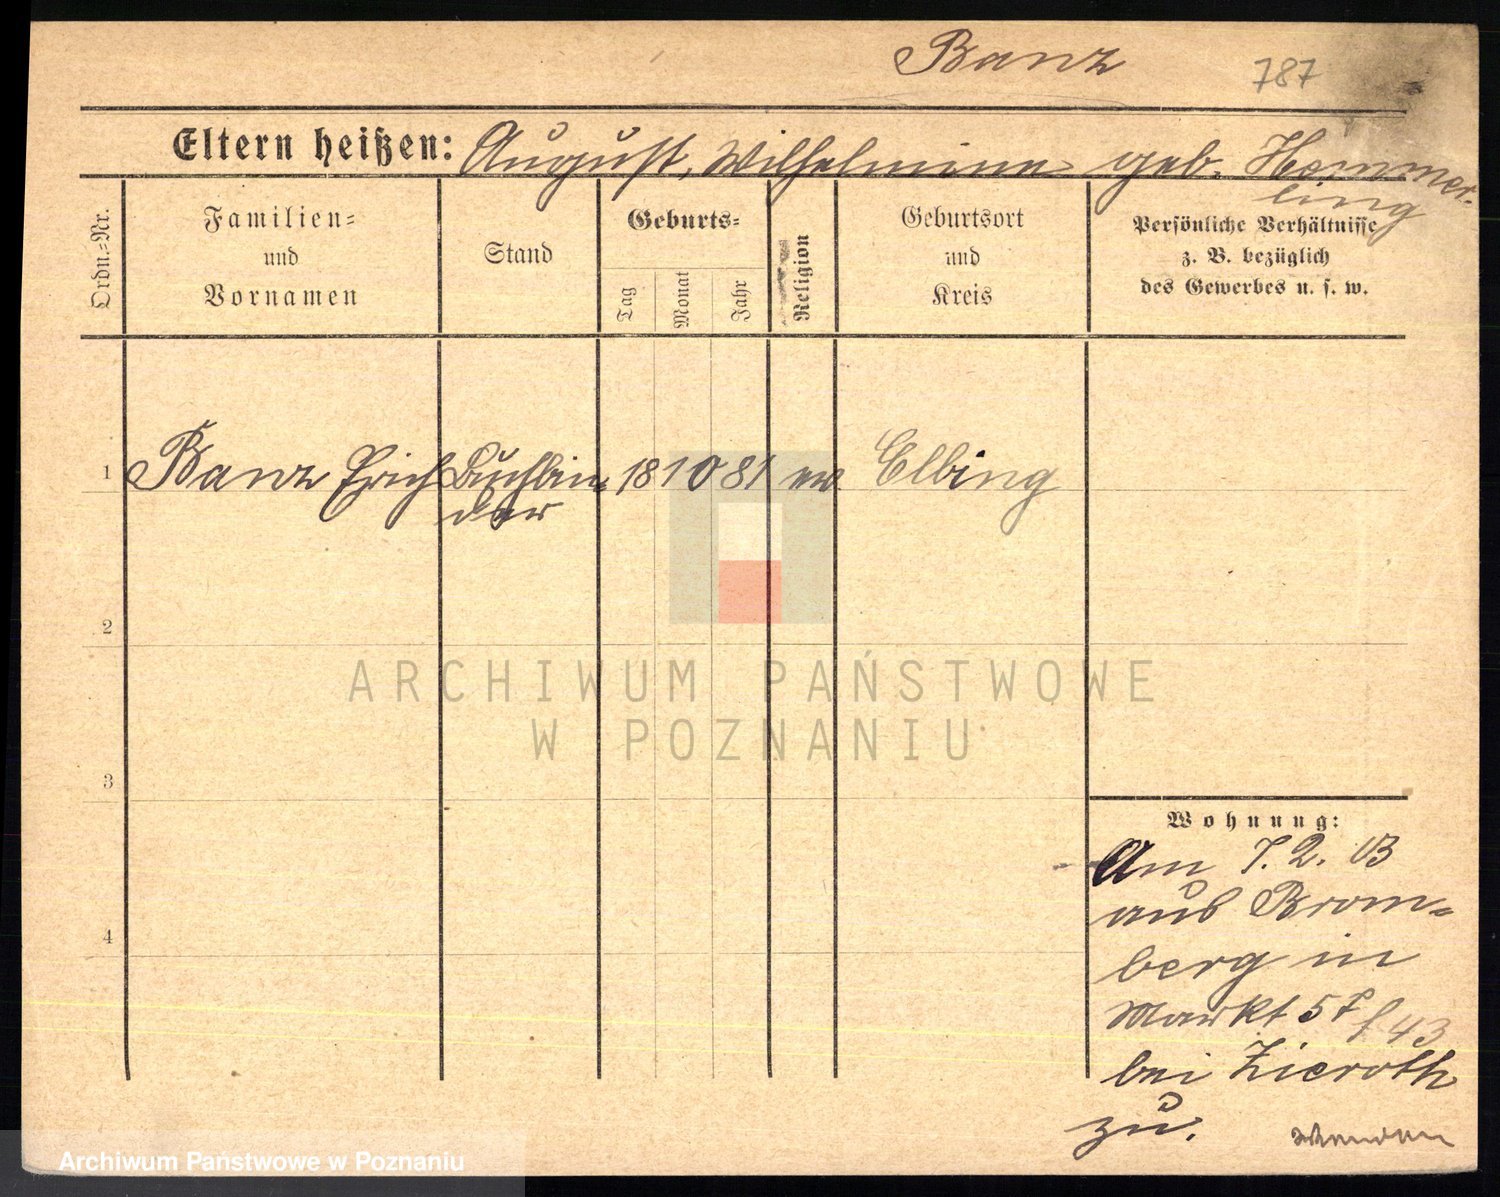 Banz 787
Eltern heißen: August, Wilhelmine geb. Hemmer-
ling
Ordn.-Nr.
Familien-
und
Vornamen
Stand
Geburts-
Tag
Monat
Jahr
Religion
Geburtsort
und
Kreis
Persönliche Verhältnisse
z. B. bezüglich
des Gewerbes u. s. w.
1 Banz Erich Buchbin- 18 10 81 ev. Elbing
der
2
ARCHIWUM PAŃSTWOWE
W POZNANIU
3
4
Wohnung:
Am 7. 2. 03
aus Brom-
berg in
Markt 57 / 43
bei Zieroth
zu.
Archiwum Państwowe w Poznaniu